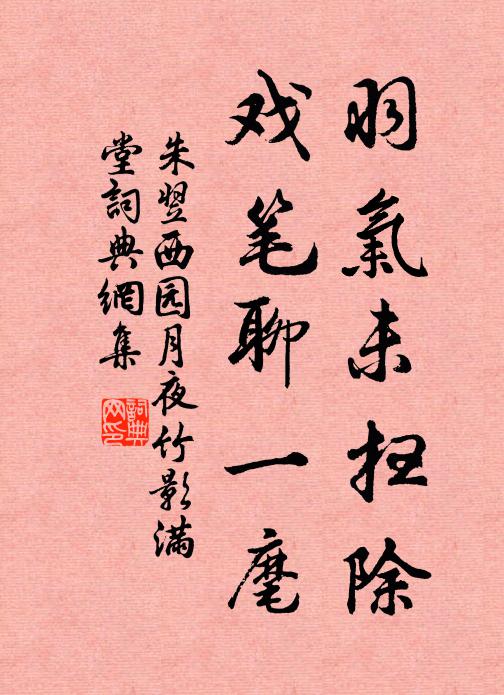 羽氣未扫除
戏笔聊一麾
朱翌西园月夜竹影滿
堂詞典網集
詞典
网印